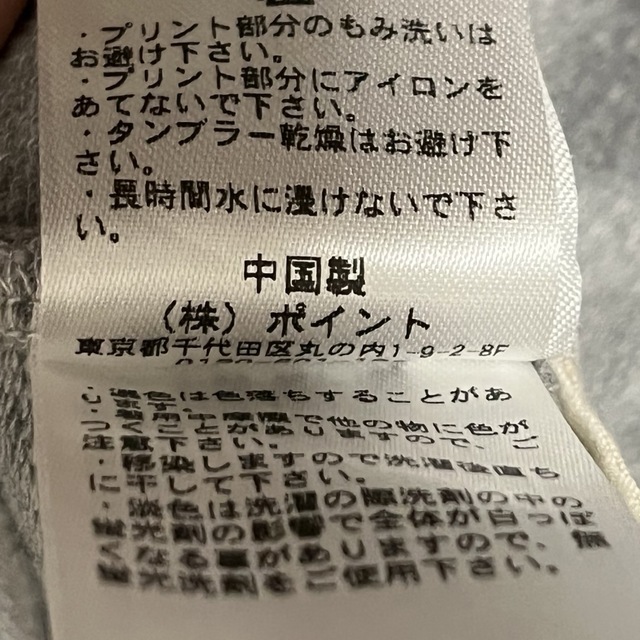 ・プリント部分のもみ洗いは
お避け下さい。
・プリント部分にアイロンを
あてないで下さい。
・タンブラー乾燥はお避け下
さい。
・長時間水に浸けないで下さ
い。
中国製
(株)ポイント
東京都千代田区丸の内1-9-2-8F
濃色は色落ちすることがあ
ります。
・着用中摩擦で他の物に色が
つくことがありますので、ご
注意下さい。
・移染しますので洗濯後直ち
に干して下さい。
・淡色は洗濯の際洗剤の中の
蛍光剤の影響で全体が白っぽ
くなる事がありますので、無
蛍光洗剤をご使用下さい。